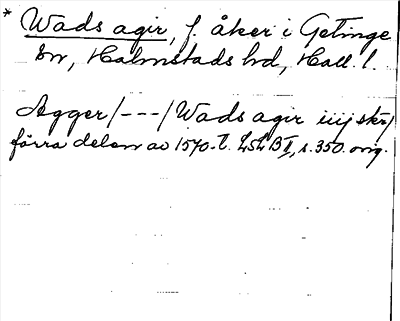 * Wads agir, f. åker i Getinge
sn, Halmstads hd, Hall. l.
Agger /---/ Wads agir iiij skr/
förra delen av 1570-t. LSLB II, s. 350. orig.